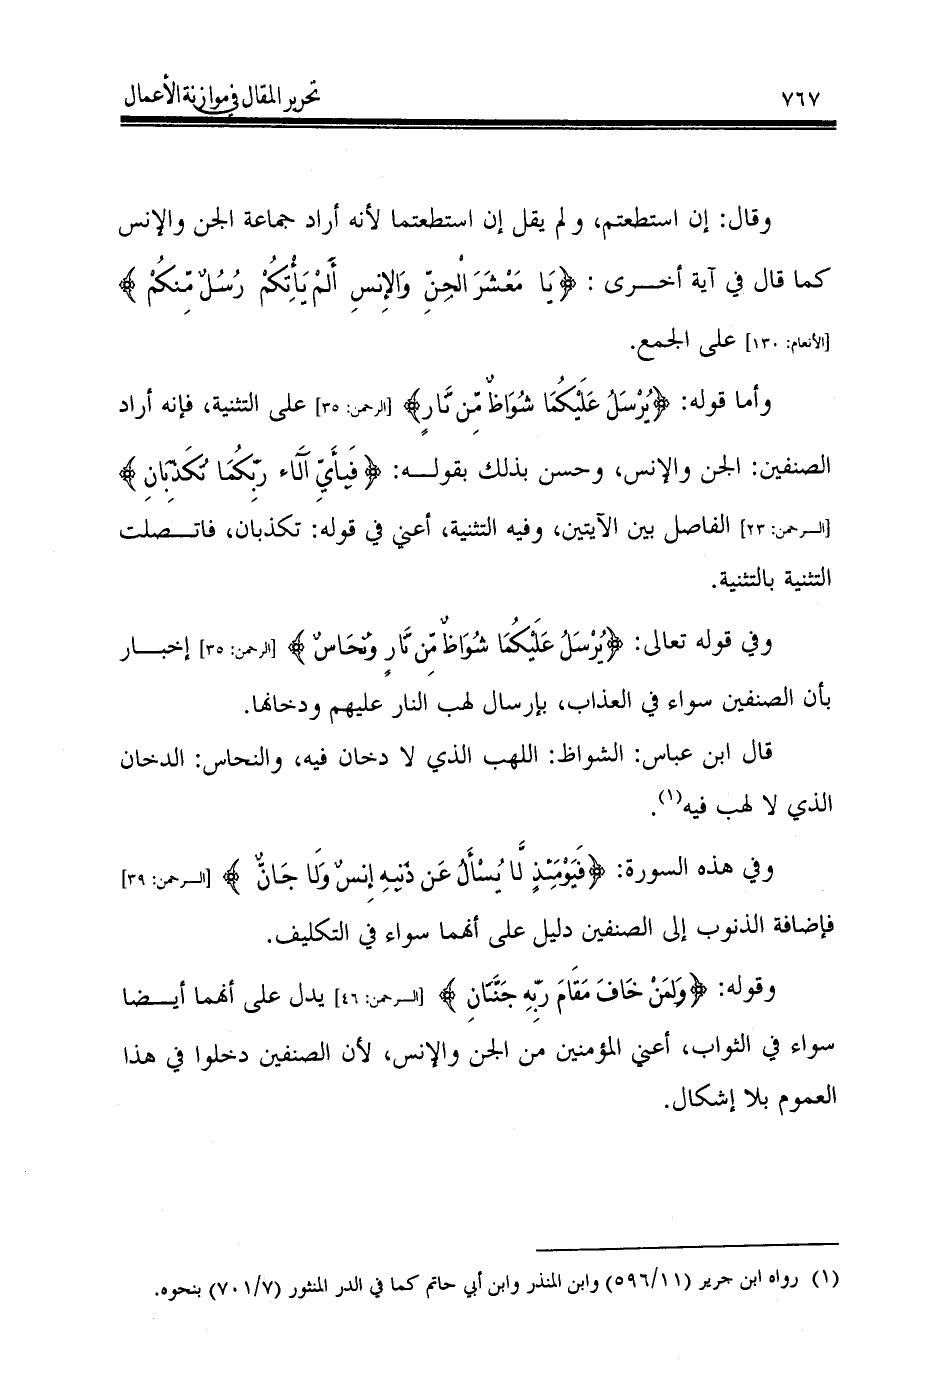 ٧٦٧ تحرير المقال في موازنة الأعمال
وقال: إن استطعتم، ولم يقل إن استطعتما لأنه أراد جماعة الجن والإنس
كما قال في آية أخــرى : ﴿يَا مَعْشَرَ الْجِنِّ وَالإِنسِ أَلَمْ يَأْتِكُمْ رُسُلٌ مِّنكُمْ ﴾
[الأنعام: ١٣٠] على الجمع.
وأما قوله: ﴿يُرْسَلُ عَلَيْكُمَا شُوَاظٌ مِّن نَّارٍ﴾ [الرحمن: ٣٥] على التثنية، فإنه أراد
الصنفين: الجن والإنس، وحسن بذلك بقولــه: ﴿ فَبِأَيِّ آلَاء رَبِّكُمَا تُكَذِّبَانِ ﴾
[الــرحمن: ٢٣] الفاصل بين الآيتين، وفيه التثنية، أعني في قوله: تكذبان، فاتــصلت
التثنية بالتثنية.
وفي قوله تعالى: ﴿يُرْسَلُ عَلَيْكُمَا شُوَاظٌ مِّن نَّارٍ وَنُحَاسٌ ﴾ [الرحمن: ٣٥] إخبــار
بأن الصنفين سواء في العذاب، بإرسال لهب النار عليهم ودخانها.
قال ابن عباس: الشواظ: اللهب الذي لا دخان فيه، والنحاس: الدخان
الذي لا لهب فيه(١).
وفي هذه السورة: ﴿فَيَوْمَئِذٍ لَّا يُسْأَلُ عَن ذَنبِهِ إِنسٌ وَلَا جَانٌّ ﴾ [الــرحمن: ٣٩]
فإضافة الذنوب إلى الصنفين دليل على أنهما سواء في التكليف.
وقوله: ﴿وَلِمَنْ خَافَ مَقَامَ رَبِّهِ جَنَّتَانِ ﴾ [الــرحمن: ٤٦] يدل على أنهما أيــضا
سواء في الثواب، أعني المؤمنين من الجن والإنس، لأن الصنفين دخلوا في هذا
العموم بلا إشكال.
(١) رواه ابن جرير (٥٩٦/١١) وابن المنذر وابن أبي حاتم كما في الدر المنثور (٧٠١/٧) بنحوه.